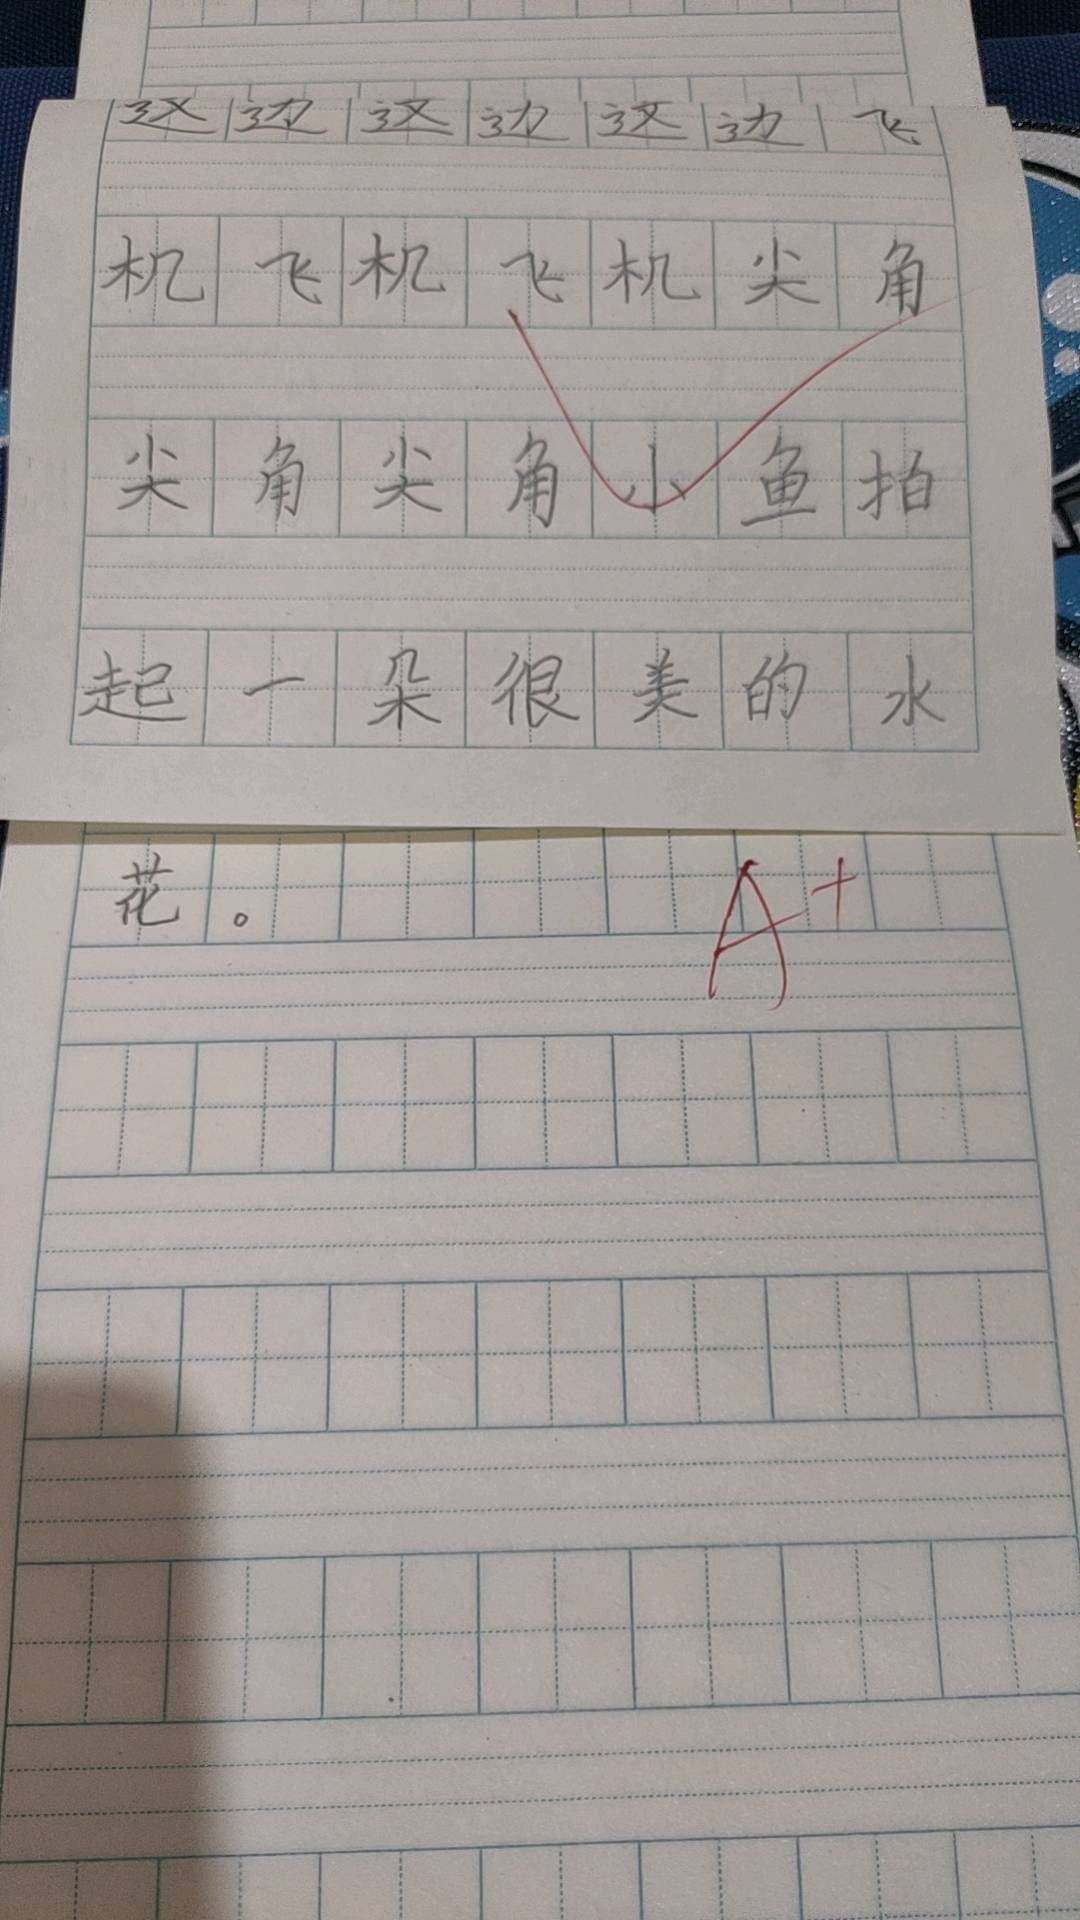 这边这边这边飞
机飞机飞机尖角
尖角尖角小鱼拍
起一朵很美的水
花。
A+